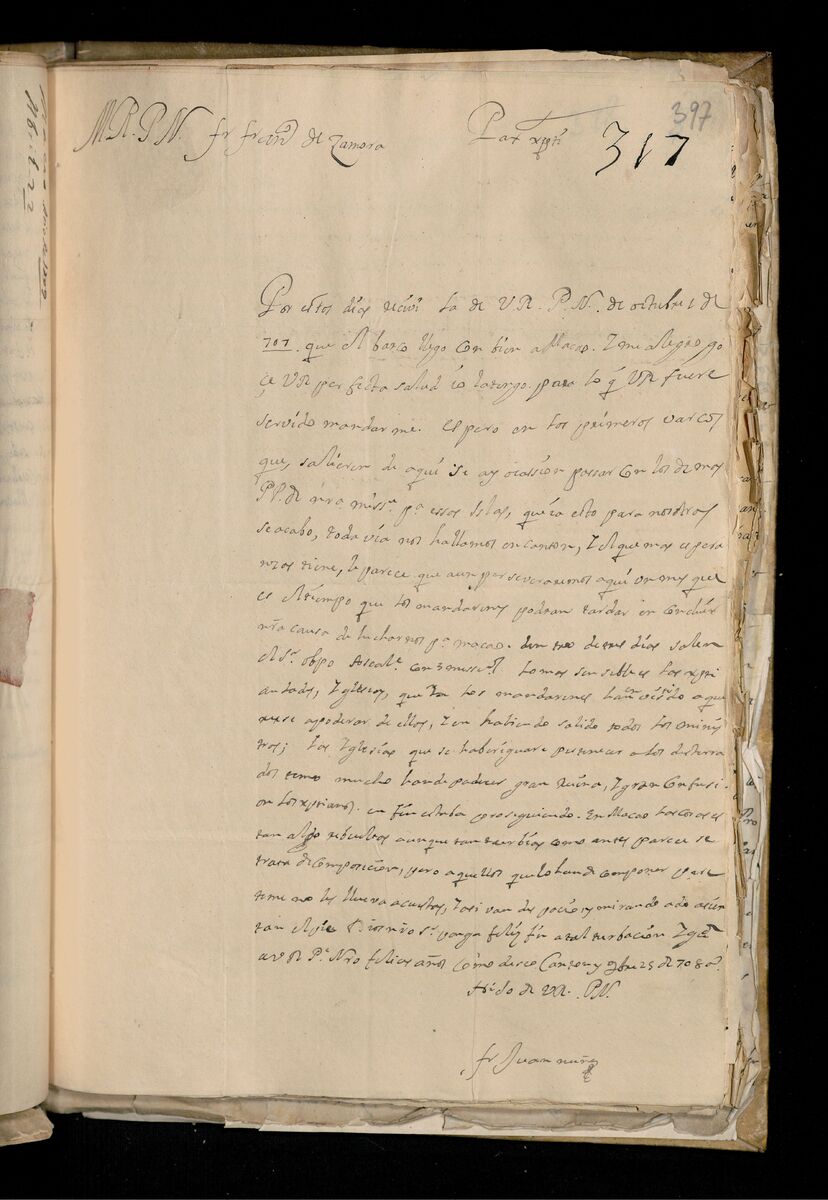 397
M R. P N. fr franco de Zamora Pax xpti 317
Por estos dias recivi la de V R. P. N. de octubre 1 de
707. que el barco llego con bien a Macao. I me alegro go
çe VR perfecta salud io la tengo. para lo q̃ VR fuere
servido mandarme. espero en los primeros varcos
que, salieren de aqui si ay ocassion passar con los demas
PP. de nra miss.ⁿ p.ª essas Islas, que ia esto para nosotros
se acabo, todavia nos hallamos en canton, I el que mas espera
nzas tiene, le parece que aun perseveraremos aqui un mes que
es el tiempo que los mandarines podran tardar en concluir
nra causa de hecharnos p.ª macao. dentro de tres dias salen
el S.r obpo Ascal.e con 3 miss.s lo mas sensible es las xpti
andades, I Iglesias, que ia los mandarines han envestido a que
rerse apoderar de ellas, I en habiendo salido todos los minis
tros; las Iglesias que se haberiguare pertenecer a los desterra
dos temo mucho han de padecer gran ruina, I gran confusi
on los xptianos. en fin estaba prosiguiendo. En Macao las cosas es
tan algo rebueltas aunque tan turbias como antes parece se
trata de composicion, pero aquellos que lo han de componer pare
ceme no les llueva acuestas, I asi van despacio y mirando a do assien
tan el pie Dios nro S.r ponga feliz fin a tal turbacion I g.e
a V R P.e Nro felices años como deseo Canton y 9bre 25 de 708 a.
Afdo de VR. PN.
fr Juan nuñez